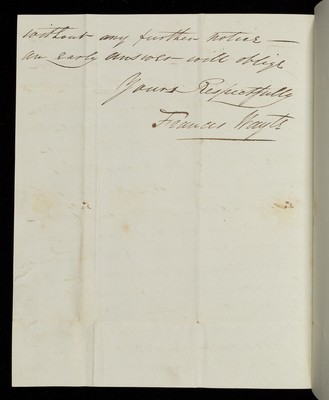 without any further notice —
an early answer will oblige
Yours Respectfully
Frances Wayte